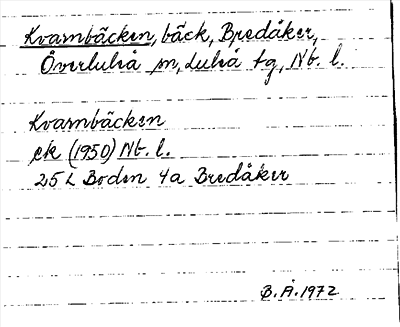 Kvarnbäcken, bäck, Bredåker,
Överluleå sn, Luleå tg, Nb. l.
Kvarnbäcken
ek (1950) Nb. l.
25 L Boden 4a Bredåker
B.Å. 1972